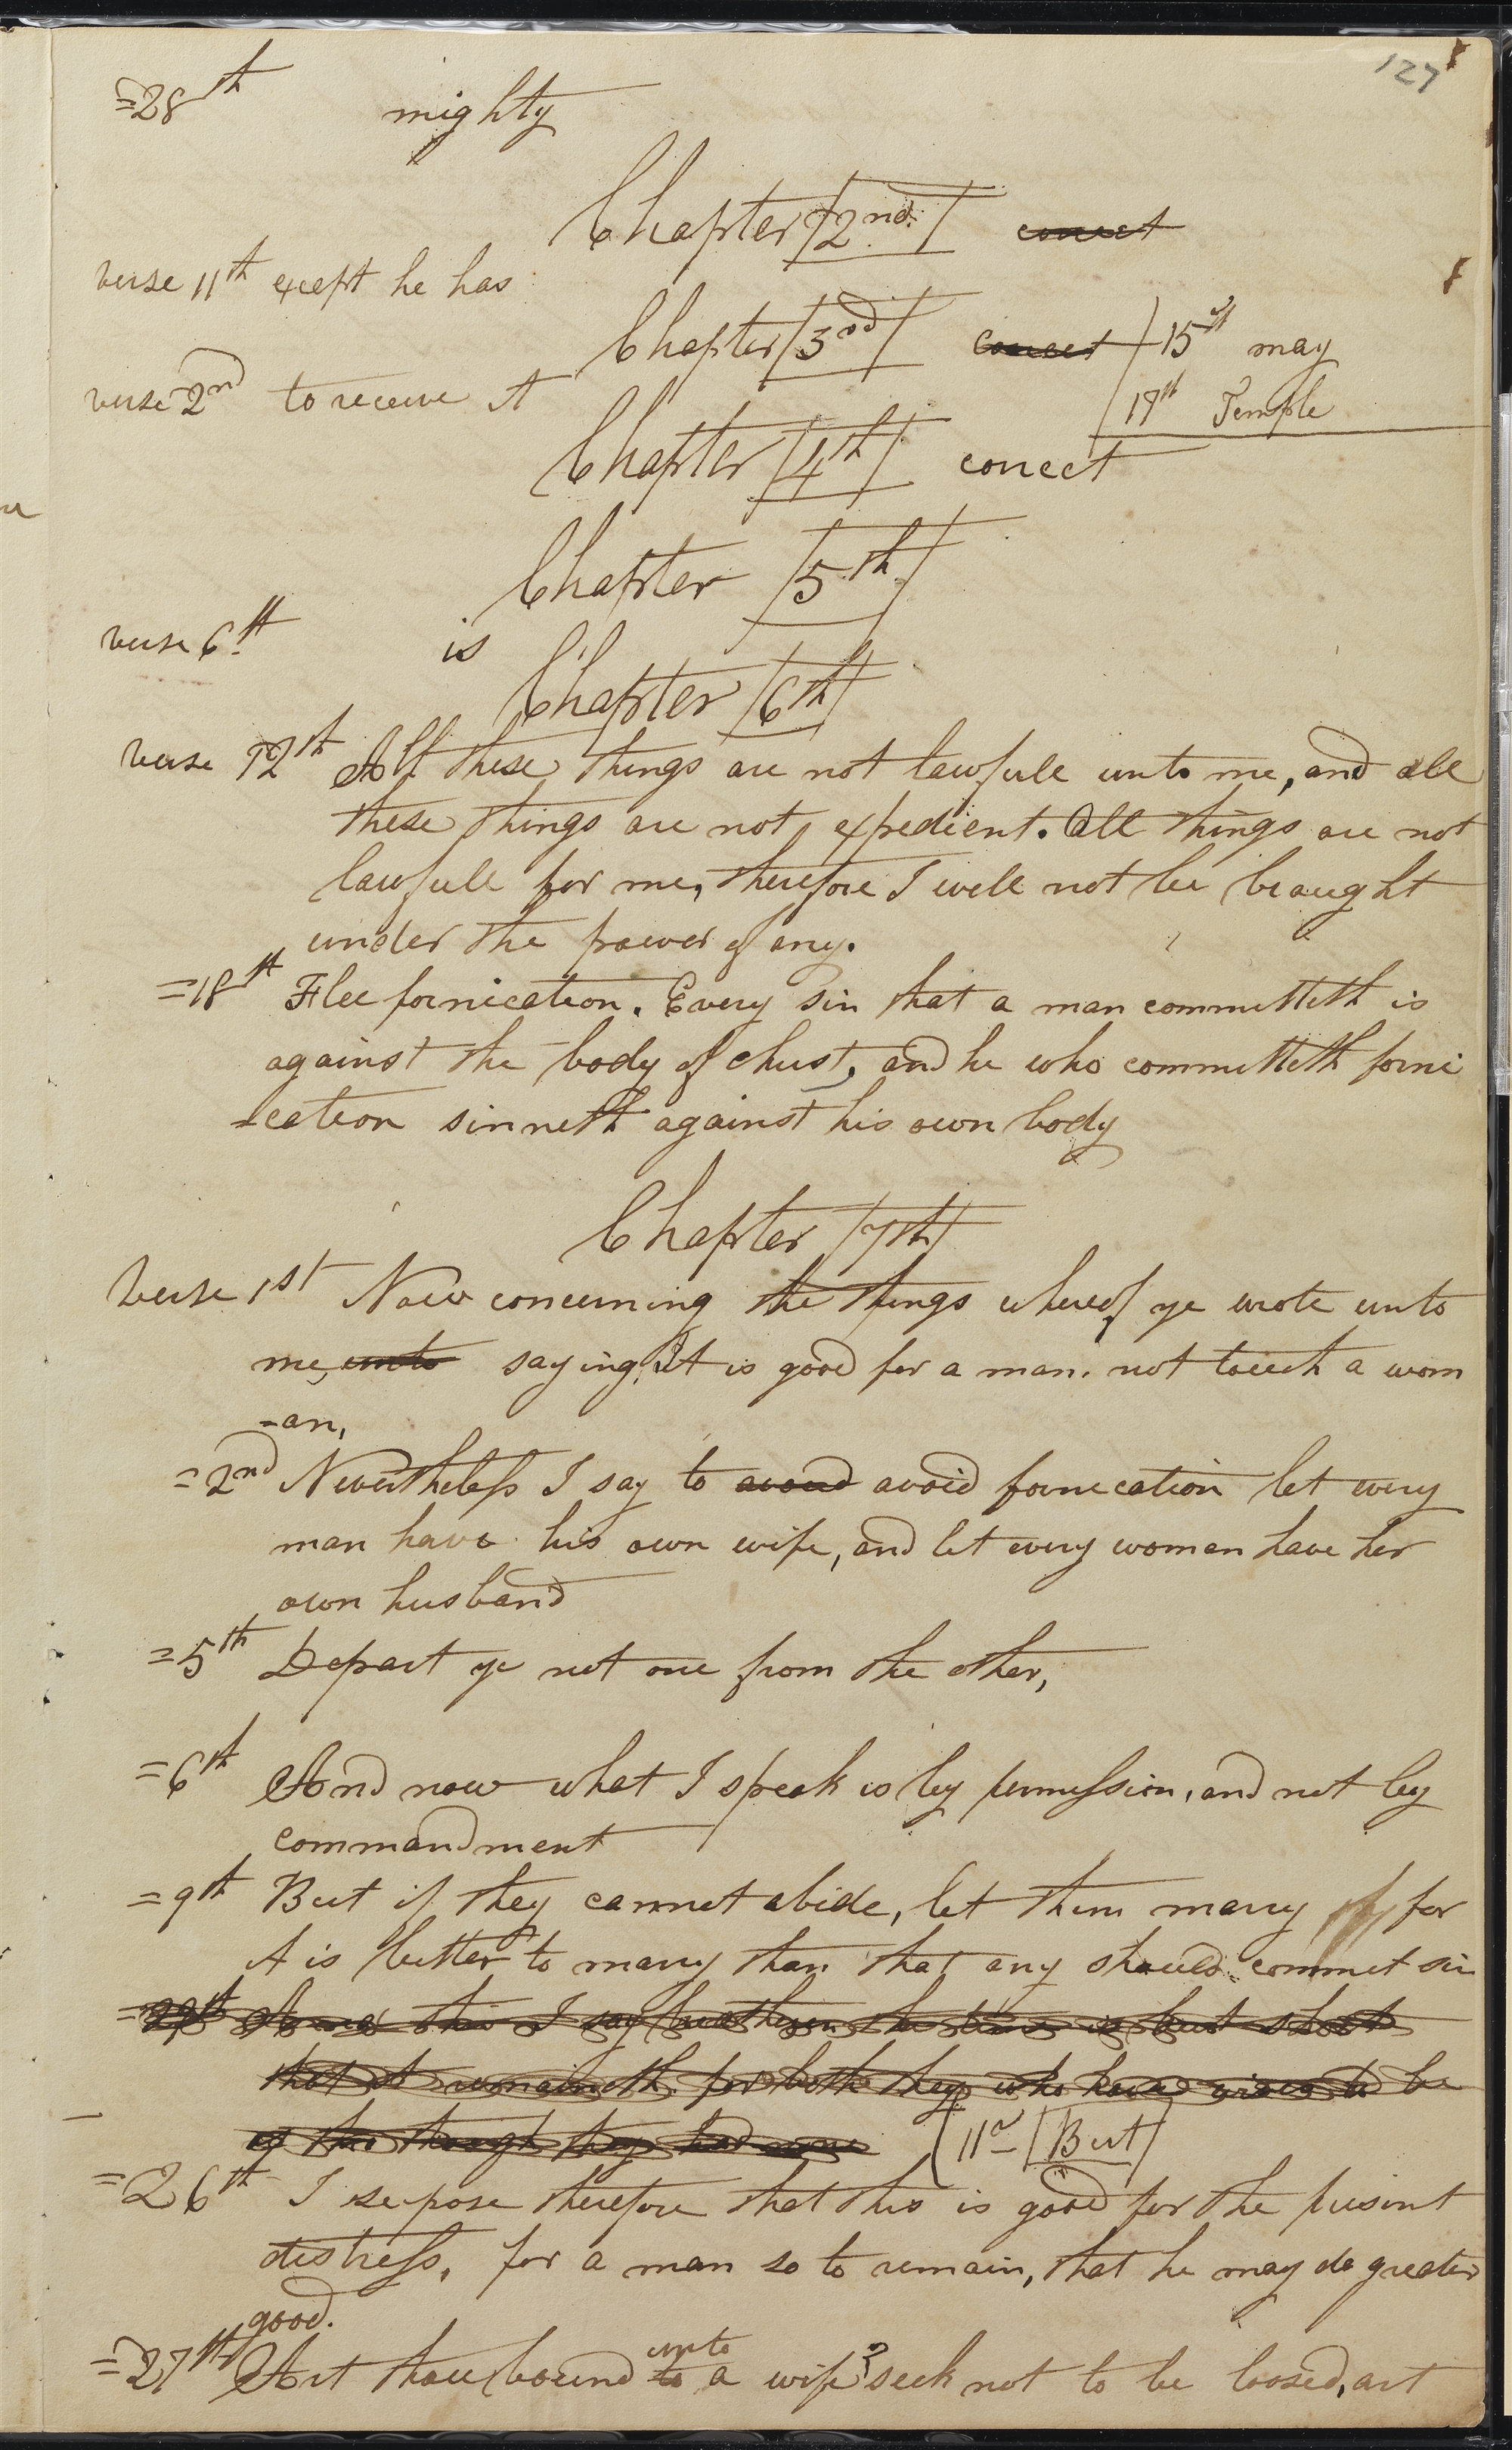 127
=28th mighty
Chapter 2nd. correct
verse 11th except he has
Chapter 3rd correct 15th may
verse 2nd to receive it
17th Temple
Chapter 4th correct
Chapter 5th
verse 6th is
Chapter 6th
verse 12th All these things are not lawfull unto me, and all
these things are not expedient. All things are not
lawfull for me, therefore I will not be brought
under the power of any.
=18th Flee fornication. Every sin that a man committeth is
against the body of christ, and he who committeth forni
-cation sinneth against his own body
Chapter 7th
Verse 1st Now concerning the things whereof ye wrote unto
me, unto saying, It is good for a man. not touch a wom
-an,
=2nd Nevertheless I say to avoid avoid fornication let every
man have his own wife, and let every woman have her
own husband
=5th Depart ye not one from the other,
=6th And now what I speak is by permission, and not by
commandment
=9th But if they cannot abide, let them marry for
it is better to marry than that any should commit sin
=29th this I say brethren the time is but short
that it remaineth. for both they who have wives to be
as though they had none 11th But
=26th I supose therefore that this is good for the presint
distress, for a man so to remain, that he may do greater
good.
=27th Art thou bound to unto a wife? seek not to be loosed, art